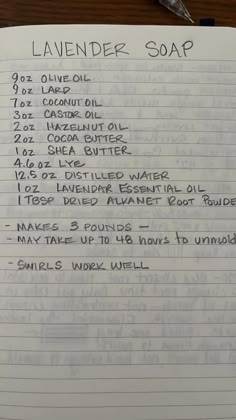 LAVENDER SOAP
9oz OLIVE OIL
9oz LARD
7oz COCONUT OIL
3oz CASTOR OIL
2oz HAZELNUT OIL
2oz COCOA BUTTER
1oz SHEA BUTTER
4.6 oz LYE
12.5 oz DISTILLED WATER
1 oz LAVENDAR ESSENTIAL OIL
1 TBSP DRIED ALKANET ROOT POWDE
- MAKES 3 POUNDS -
- MAY TAKE UP TO 48 hours to unmold
- SWIRLS WORK WELL